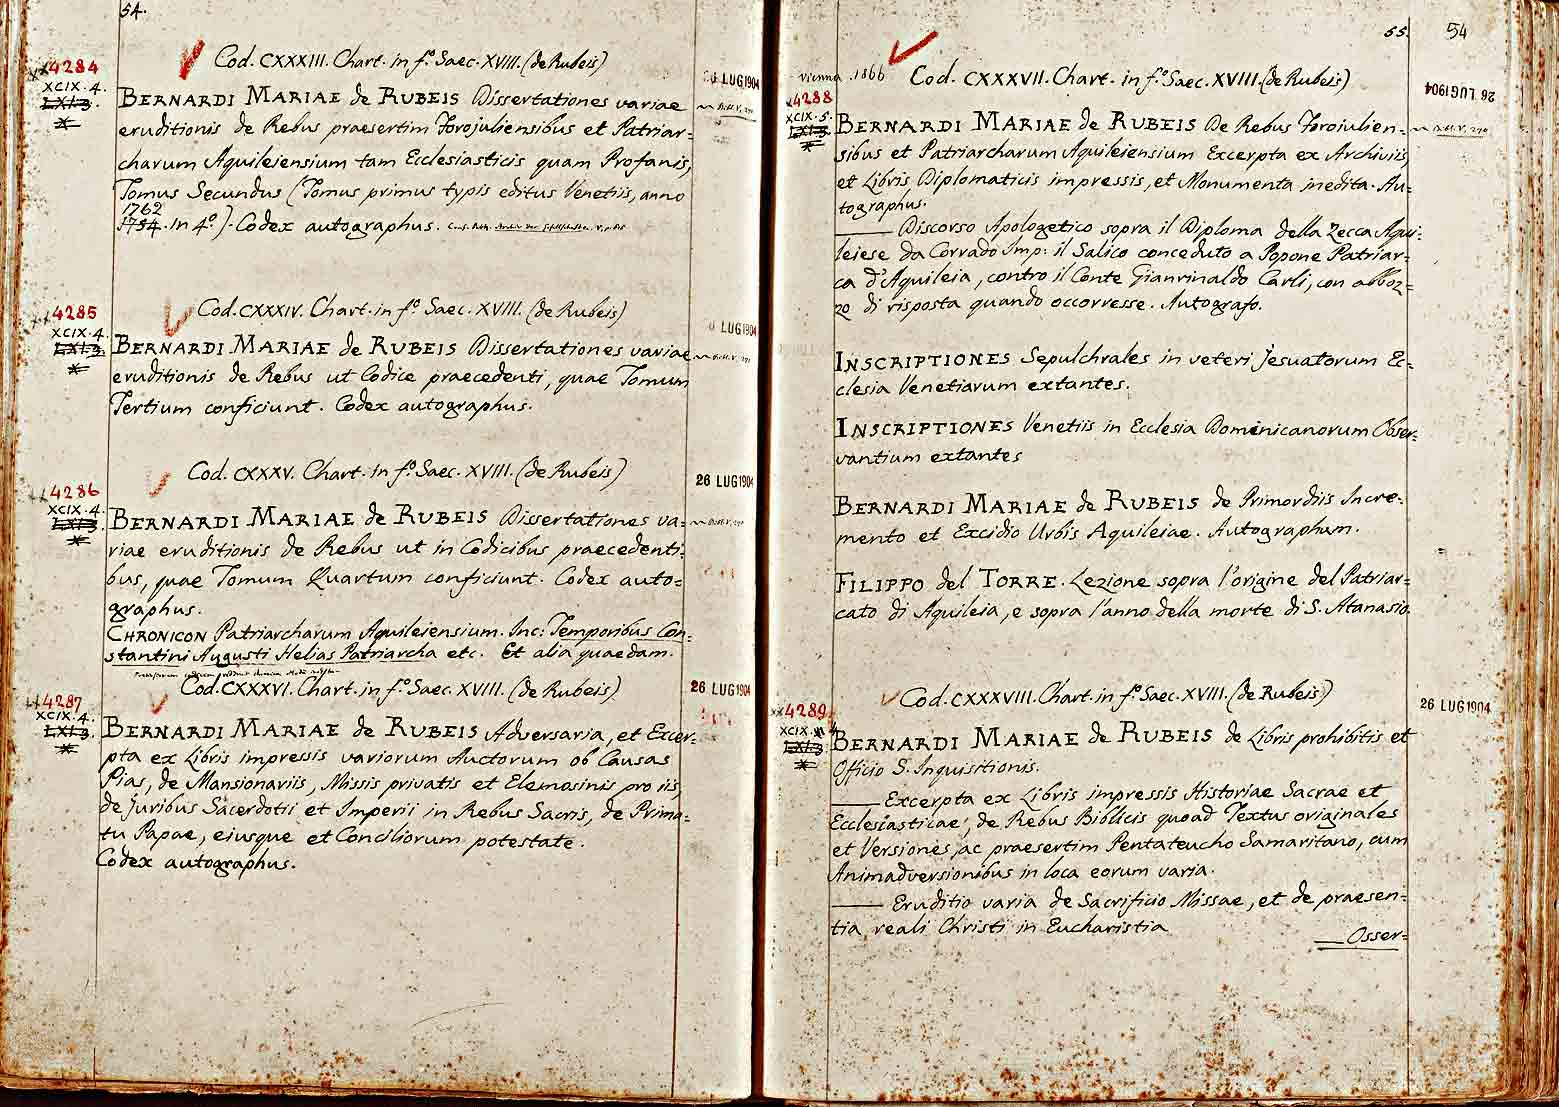 54.
4284
XCIX. 4.
LXI. 3.
Cod. CXXXIII. Chart. in f.º Saec. XVIII. (de Rubeis)
26 LUG 1904
BERNARDI MARIAE de RUBEIS Dissertationes variae
eruditionis de Rebus praesertim Forojuliensibus et Patriar=
charum Aquileiensium tam Ecclesiasticis quam Profanis,
Tomus Secundus (Tomus primus typis editus Venetiis, anno
1762
1754. in 4.º). Codex autographus.
4285
XCIX. 4.
LXI. 3.
Cod. CXXXIV. Chart. in f.º Saec. XVIII. (de Rubeis)
6 LUG 1904
BERNARDI MARIAE de RUBEIS Dissertationes variae
eruditionis de Rebus ut Codice praecedenti, quae Tomum
Tertium conficiunt. Codex autographus.
4286
XCIX. 4.
LXI. 3.
Cod. CXXXV. Chart. in f.º Saec. XVIII. (de Rubeis)
26 LUG 1904
BERNARDI MARIAE de RUBEIS Dissertationes va=
riae eruditionis de Rebus ut in Codicibus praecedenti=
bus, quae Tomum Quartum conficiunt. Codex auto=
graphus.
CHRONICON Patriarcharum Aquileiensium. Inc: Temporibus Con=
stantini Augusti Helias Patriarcha etc. Et alia quaedam.
4287
XCIX. 4.
LXI. 3.
Cod. CXXXVI. Chart. in f.º Saec. XVIII. (de Rubeis)
26 LUG 1904
BERNARDI MARIAE de RUBEIS Adversaria, et Excer=
pta ex Libris impressis variorum Auctorum ob Causas
Pias, de Mansionariis, Missis privatis et Elemosinis pro iis,
de Juribus Sacerdotii et Imperii in Rebus Sacris, de Prima=
tu Papae, ejusque et Conciliorum potestate.
Codex autographus.
55.
54
Vienna. 1866
4288
XCIX. 5.
LXI. 3
Cod. CXXXVII. Chart. in f.º Saec. XVIII. (de Rubeis)
26 LUG 1904
BERNARDI MARIAE de RUBEIS De Rebus Forojulien=
sibus et Patriarcharum Aquileiensium Excerpta ex Archiviis,
et Libris Diplomaticis impressis, et Monumenta inedita. Au=
tographus.
—— Discorso Apologetico sopra il Diploma della Zecca Aqui=
leiese da Corrado Imp: il Salico conceduto a Popone Patriar=
ca d'Aquileia, contro il Conte Gianrinaldo Carli, con abboz=
zo di risposta quando occorresse. Autografo.
INSCRIPTIONES Sepulchrales in veteri Jesuatorum Ec=
clesia Venetiarum extantes.
INSCRIPTIONES Venetiis in Ecclesia Dominicanorum Obser=
vantium extantes
BERNARDI MARIAE de RUBEIS de Primordiis Incre=
mento et Excidio Urbis Aquileiae. Autographum.
FILIPPO del TORRE. Lezione sopra l'origine del Patriar=
cato di Aquileia, e sopra l'anno della morte di S. Atanasio.
4289
XCIX. 4
LXI. 3
Cod. CXXXVIII. Chart. in f.º Saec. XVIII. (de Rubeis)
26 LUG 1904
BERNARDI MARIAE de RUBEIS de Libris prohibitis et
Officio S. Inquisitionis.
—— Excerpta ex Libris impressis Historiae Sacrae et
Ecclesiasticae, de Rebus Biblicis quoad Textus originales
et Versiones, ac praesertim Pentateucho Samaritano, cum
Animadversionibus in loca eorum varia.
—— Eruditio varia de Sacrificio Missae, et de praesen=
tia reali Christi in Eucharistia
—— Osser=